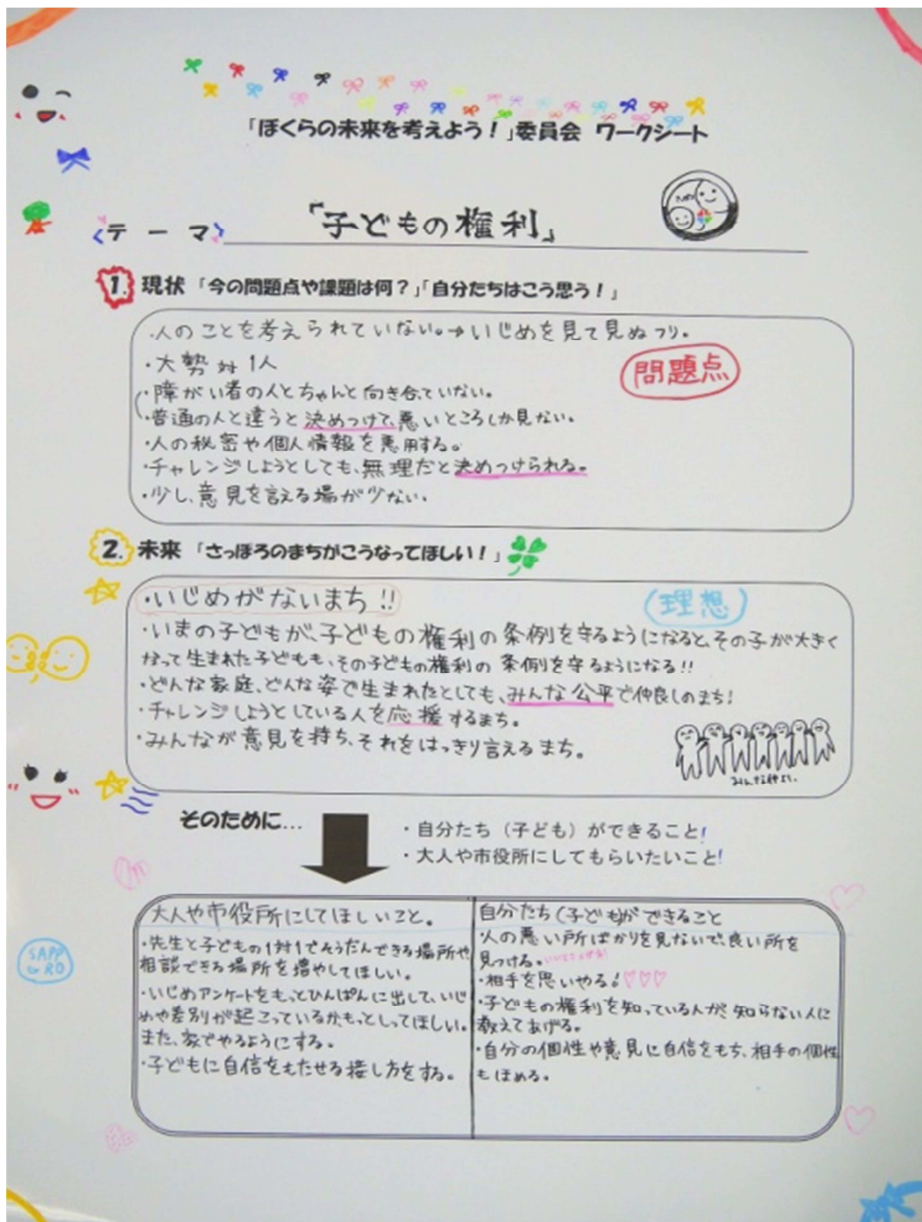 「ぼくらの未来を考えよう！」委員会 ワークシート
テーマ 「子どもの権利」
1. 現状 「今の問題点や課題は何？」「自分たちはこう思う！」
・人のことを考えられていない。→いじめを見て見ぬフリ。
・大勢対1人
問題点
・障がい者の人とちゃんと向き合ていない。
・普通の人と違うと決めつけて、悪いところしか見ない。
・人の秘密や個人情報を悪用する。
・チャレンジしようとしても、無理だと決めつけられる。
・少し、意見を言える場が少ない。
2. 未来 「さっぽろのまちがこうなってほしい！」
・いじめがないまち!!
理想
・いまの子どもが、子どもの権利の条例を守るようになると、その子が大きく
なって生まれた子どもも、その子どもの権利の条例を守るようになる!!
・どんな家庭、どんな姿で生まれたとしても、みんな公平で仲良しのまち!
・チャレンジしようとしている人を応援するまち。
・みんなが意見を持ち、それをはっきり言えるまち。
みんな仲よし。
そのために…
・自分たち（子ども）ができること!
・大人や市役所にしてもらいたいこと!
大人や市役所にしてほしいこと。
・先生と子どもの1対1でそうだんできる場所や
相談できる場所を増やしてほしい。
・いじめアンケートをもっとひんぱんに出して、いじ
めや差別が起こっているか、もっとしてほしい。
また、家でやるようにする。
・子どもに自信をもたせる接し方をする。
自分たち(子ども)ができること
・人の悪い所ばかりを見ないで、良い所を
見つける。
・相手を思いやる!
・子どもの権利を知っている人が、知らない人に
教えてあげる。
・自分の個性や意見に自信をもち、相手の個性
もほめる。
SAPP
RO